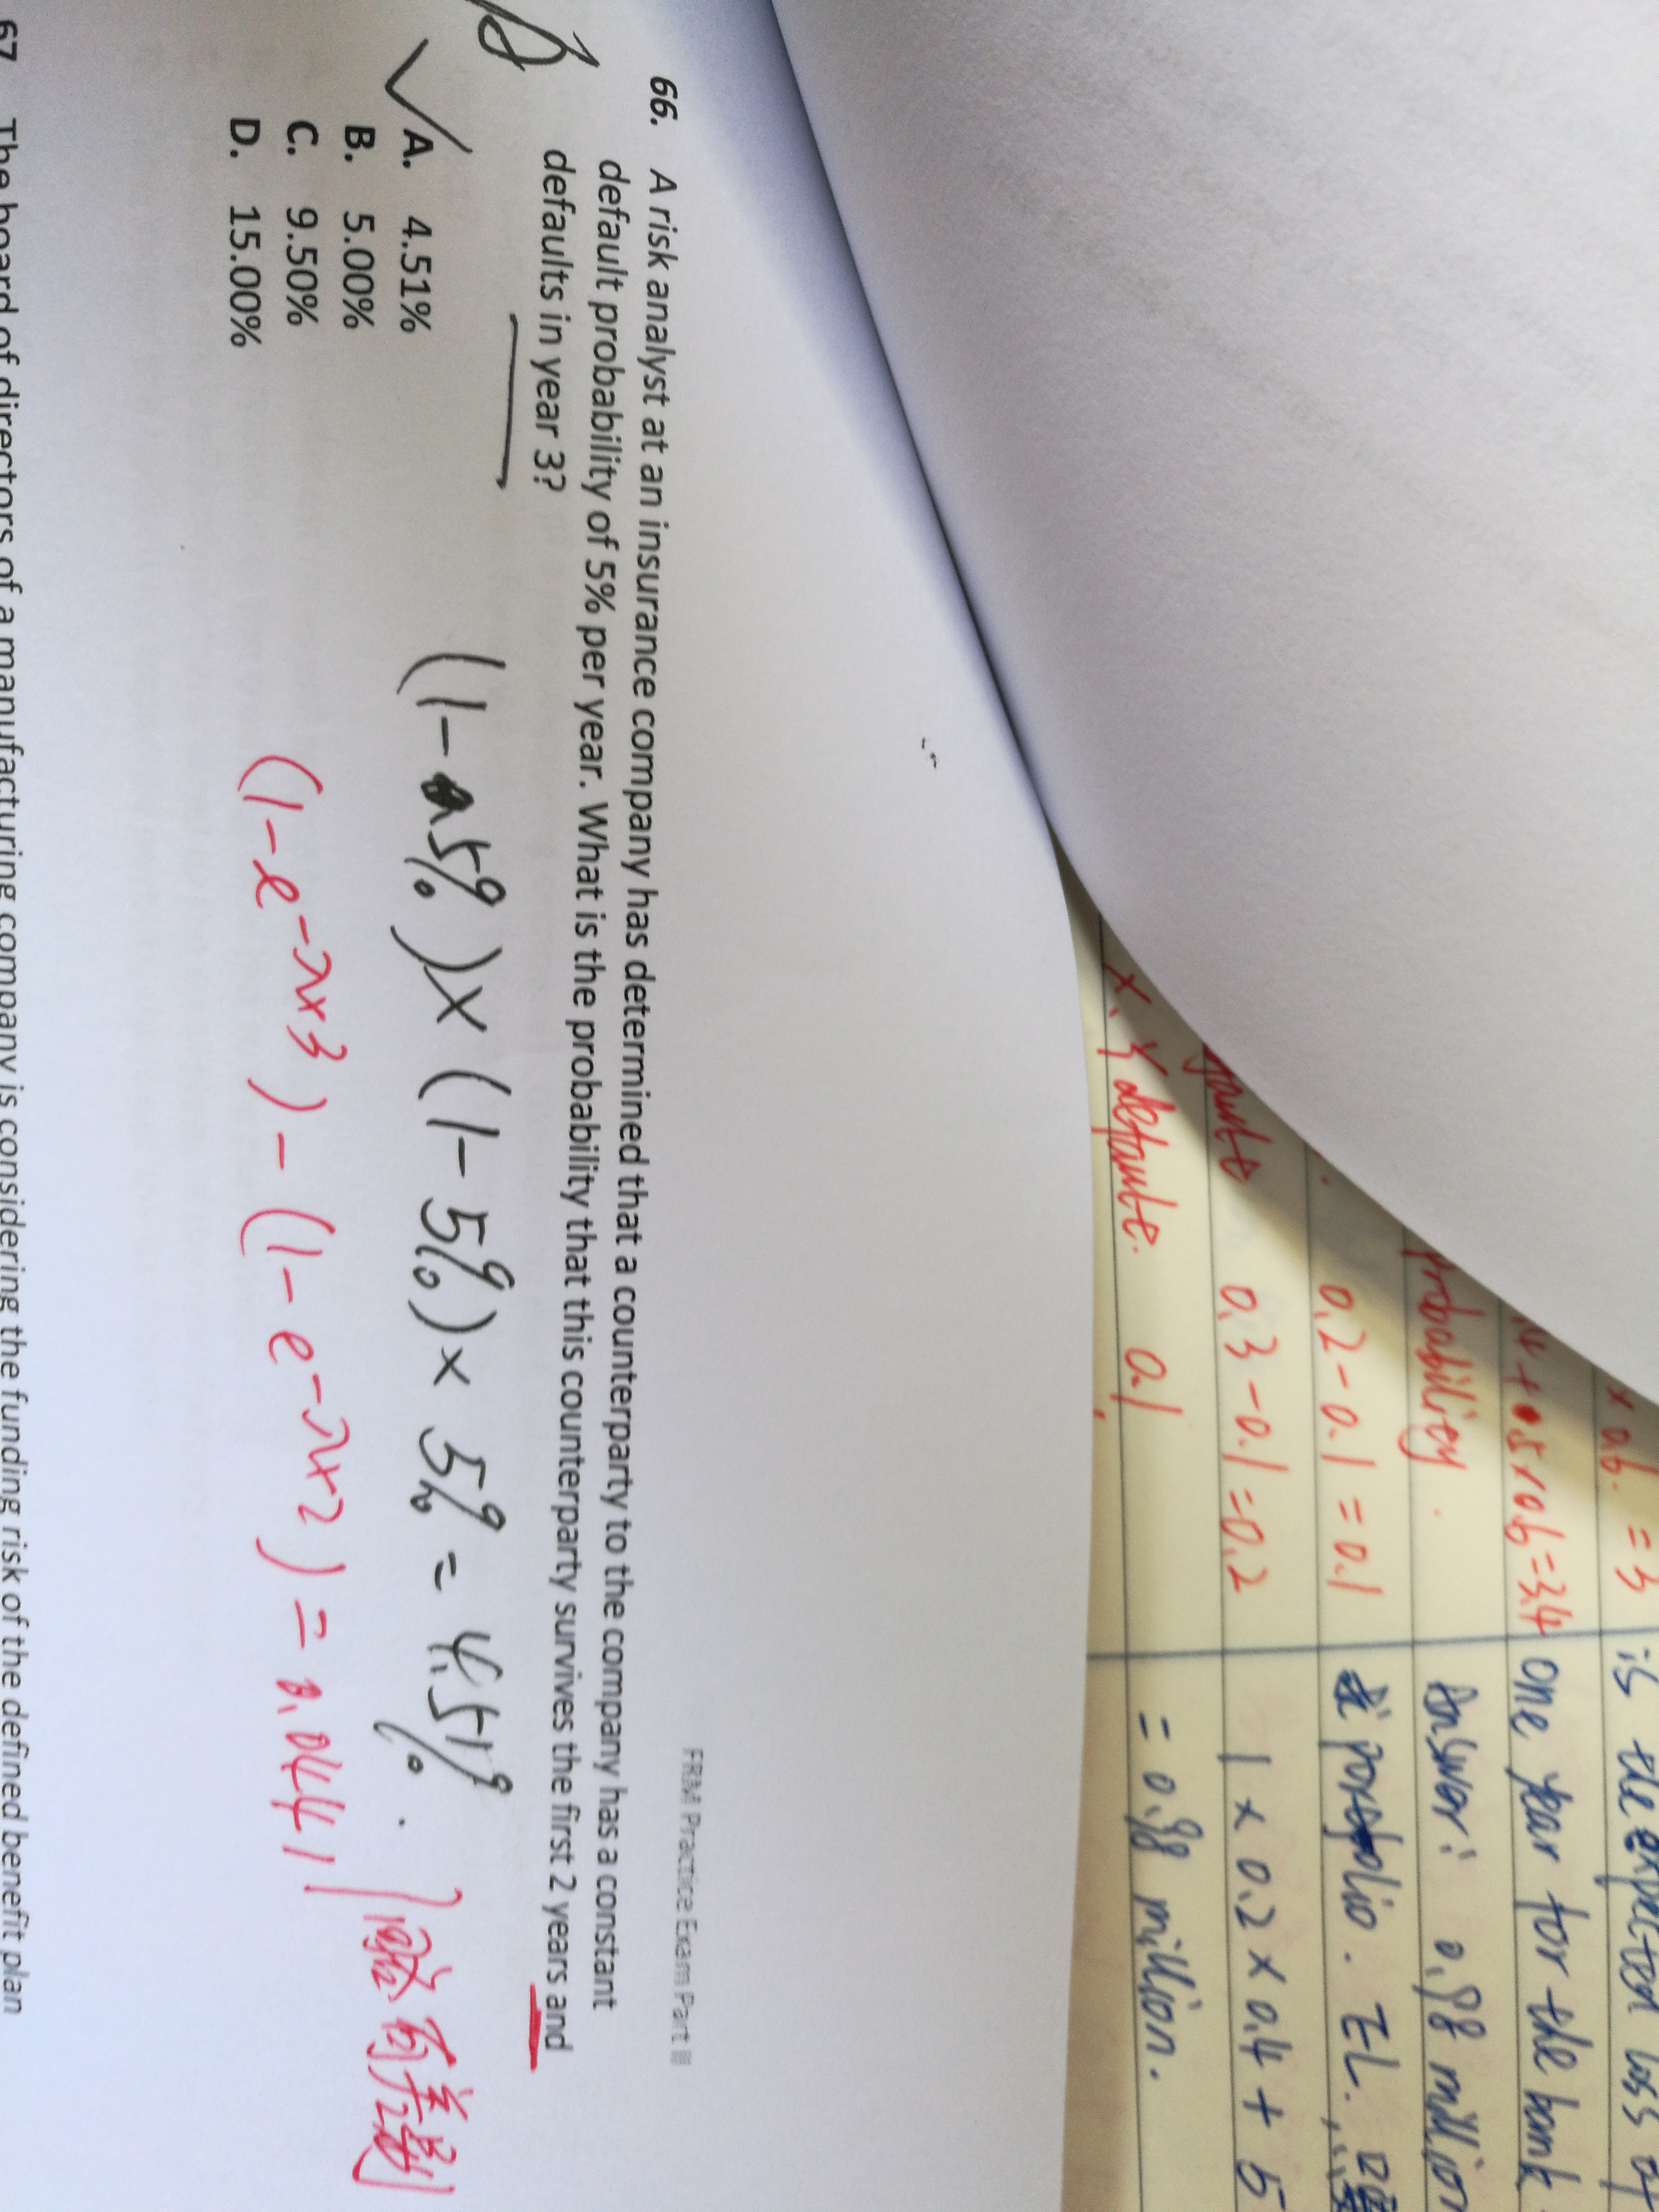 FRM Practice Exam Part II
66. A risk analyst at an insurance company has determined that a counterparty to the company has a constant
default probability of 5% per year. What is the probability that this counterparty survives the first 2 years and
defaults in year 3?
A. 4.51%
B. 5.00%
C. 9.50%
D. 15.00%
(1-5%)×(1-5%)×5%=4.51%.
(1-e^-λ×3)-(1-e^-λ×2)=0.0441
67 The board of directors of a manufacturing company is considering the funding risk of the defined benefit plan
= 3
Probability.
0.2-0.1=0.1
0.3-0.1=0.2
0.1
is the expected loss of
one year for the bank
Answer: 0.98 million
portfolio. EL.
1×0.2×0.4+
=0.98 million.